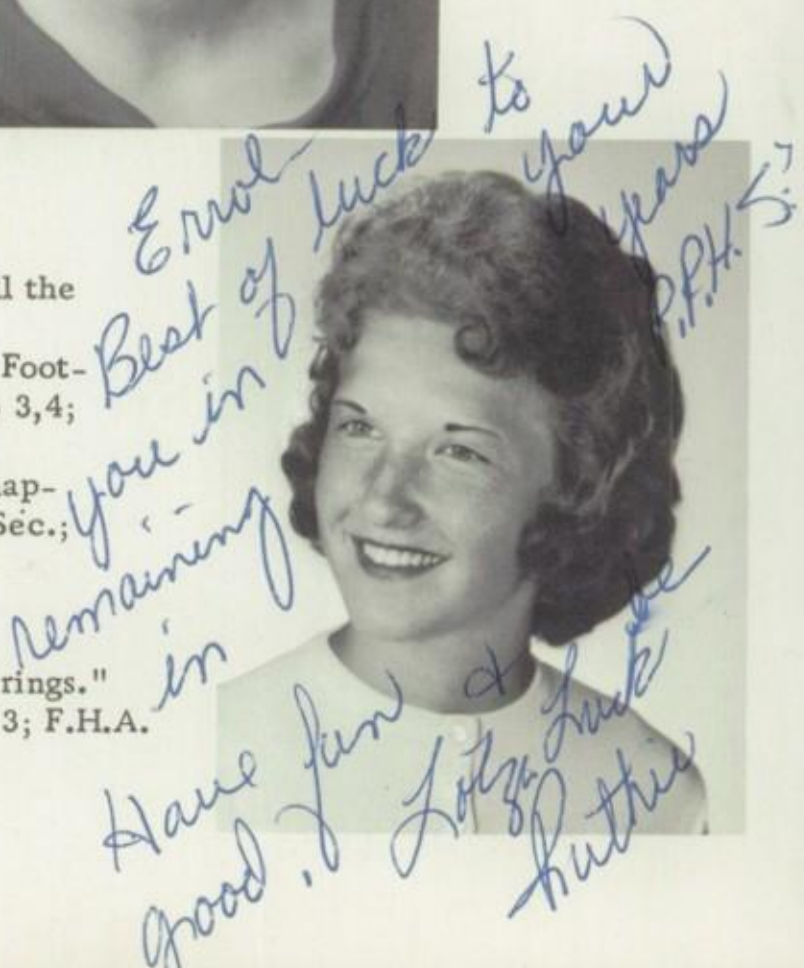 l the
Foot-
3,4;
ap-
Sec.;
rings."
3; F.H.A.
Errol-
Best of luck to
you in your
remaining years
in P.P.H.S.
Have fun & be
good. Lotza Luck
Ruthie